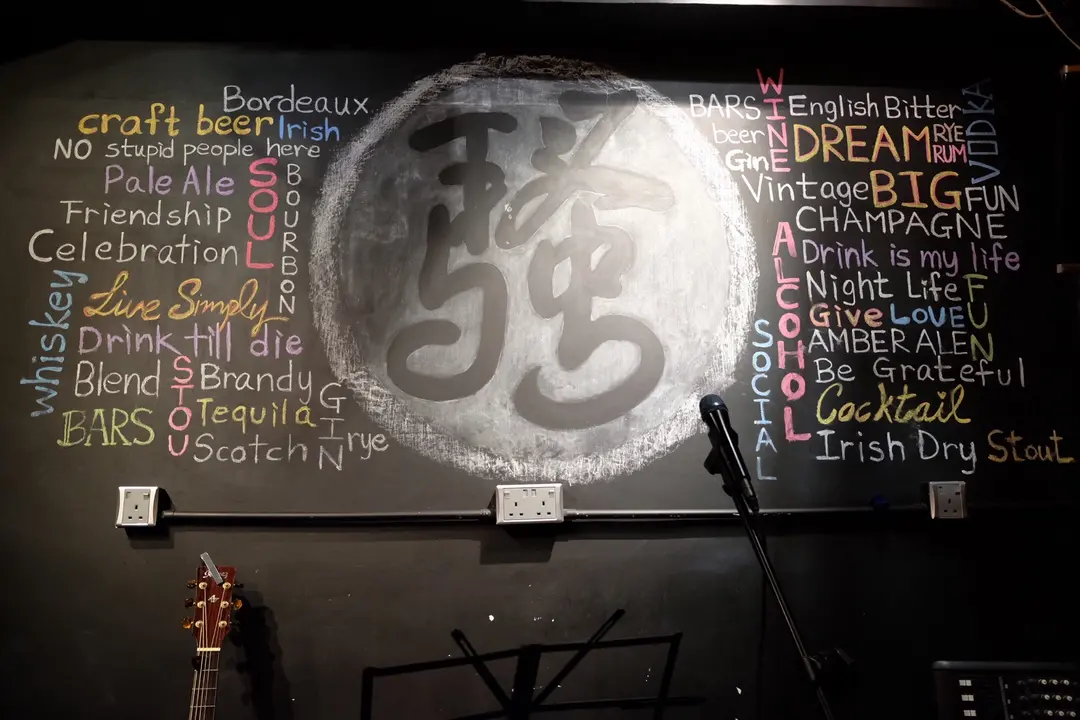 Bordeaux
craft beer Irish
NO stupid people here
Pale Ale
SOUL
BOURBON
Friendship
Celebration
whiskey
Live Simply
Drink till die
Blend
STOU
Brandy
GIN
BARS
Tequila
Scotch
rye
騷
BARS
WINE
English Bitter
VODKA
beer
DREAM
RYE
RUM
Gin
Vintage BIG FUN
CHAMPAGNE
ALCOHOL
Drink is my life
Night Life
FUN
Give LOVE
SOCIAL
AMBER ALE
Be Grateful
Cocktail
Irish Dry Stout